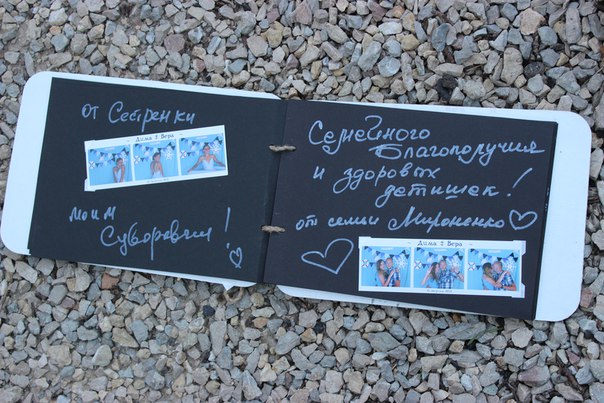 от Сестренки
Дима & Вера
моим
Суворовым!
Семейного
благополучия
и здоровых
детишек!
от семьи Мироненко
Дима & Вера